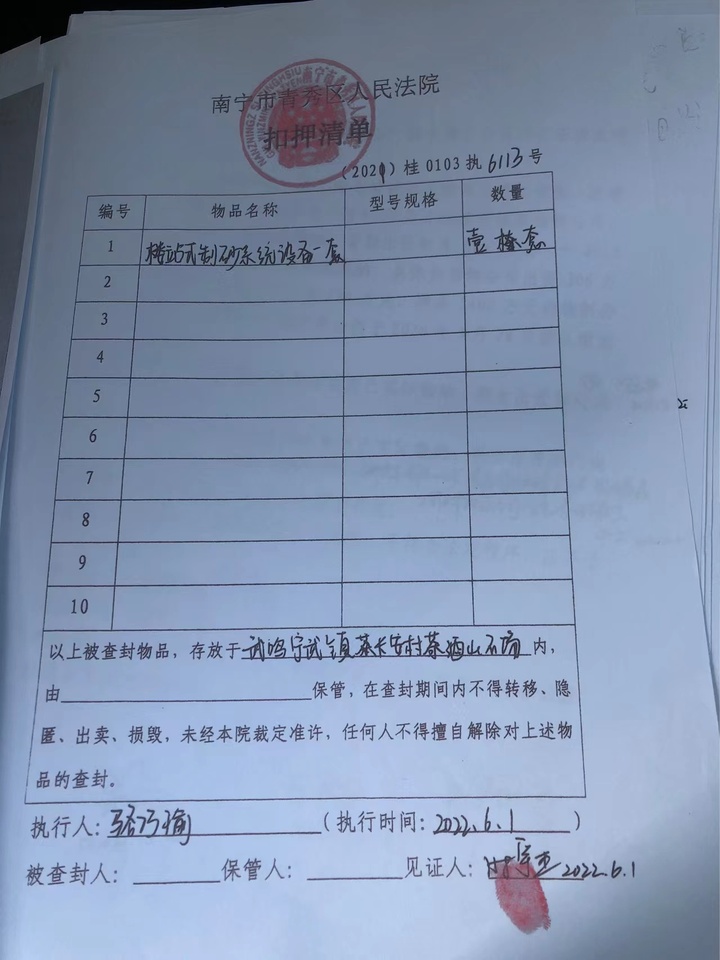 南宁市青秀区人民法院
扣押清单
(2021)桂0103执6113号
编号 物品名称 型号规格 数量
1 楼站式制砂系统设备一套 壹整套
2
3
4
5
6
7
8
9
10
以上被查封物品,存放于武鸣宁武镇 内,
由 保管,在查封期间内不得转移、隐
匿、出卖、损毁,未经本院裁定准许,任何人不得擅自解除对上述物
品的查封。
执行人: (执行时间:2022.6.1)
被查封人: 保管人: 见证人: 2022.6.1